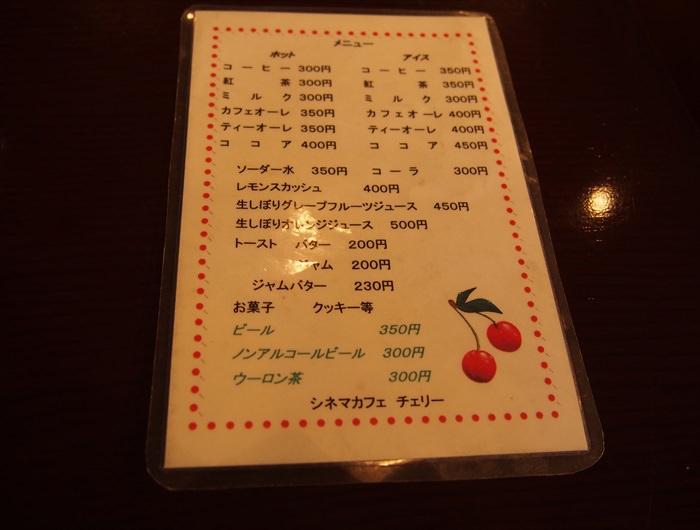 メニュー
ホット アイス
コーヒー 300円 コーヒー 350円
紅茶 300円 紅茶 350円
ミルク 300円 ミルク 300円
カフェオーレ 350円 カフェオーレ 400円
ティーオーレ 350円 ティーオーレ 400円
ココア 400円 ココア 450円
ソーダー水 350円 コーラ 300円
レモンスカッシュ 400円
生しぼりグレープフルーツジュース 450円
生しぼりオレンジジュース 500円
トースト バター 200円
ジャム 200円
ジャムバター 230円
お菓子 クッキー等
ビール 350円
ノンアルコールビール 300円
ウーロン茶 300円
シネマカフェ チェリー